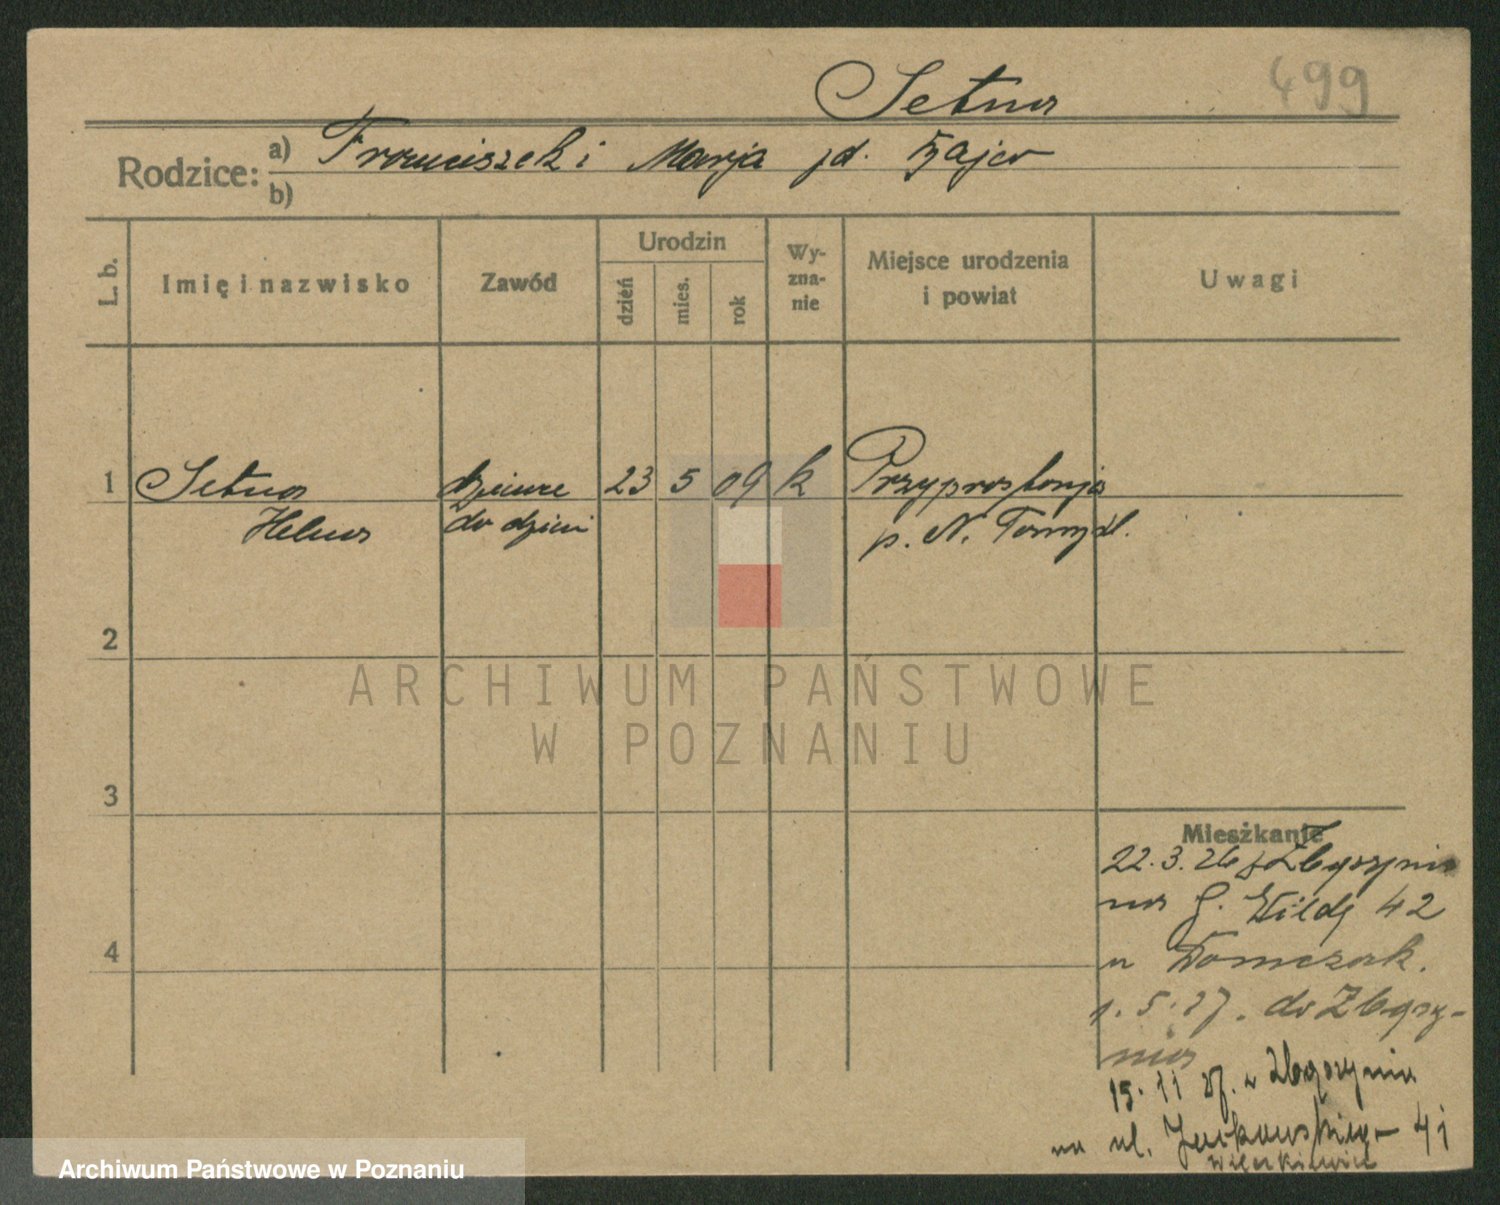 Setna
499
Rodzice:
a) Franciszek i Marja
b)
L. b.
Imię i nazwisko
Zawód
Urodzin
dzień
mies.
rok
Wy-
zna-
nie
Miejsce urodzenia
i powiat
Uwagi
1 Setna 23 5 09 k Przyprostynia
do dzieci p. N. Tomyśl.
2
3
4
ARCHIWUM PAŃSTWOWE
W POZNANIU
Mieszkanie
22.3.26 z Zbąszynia
na G. Wildę 42
u Tomczak.
1.5.27. do Zbąszy-
nia
15.11 27. z Zbąszynia
na ul.
Archiwum Państwowe w Poznaniu